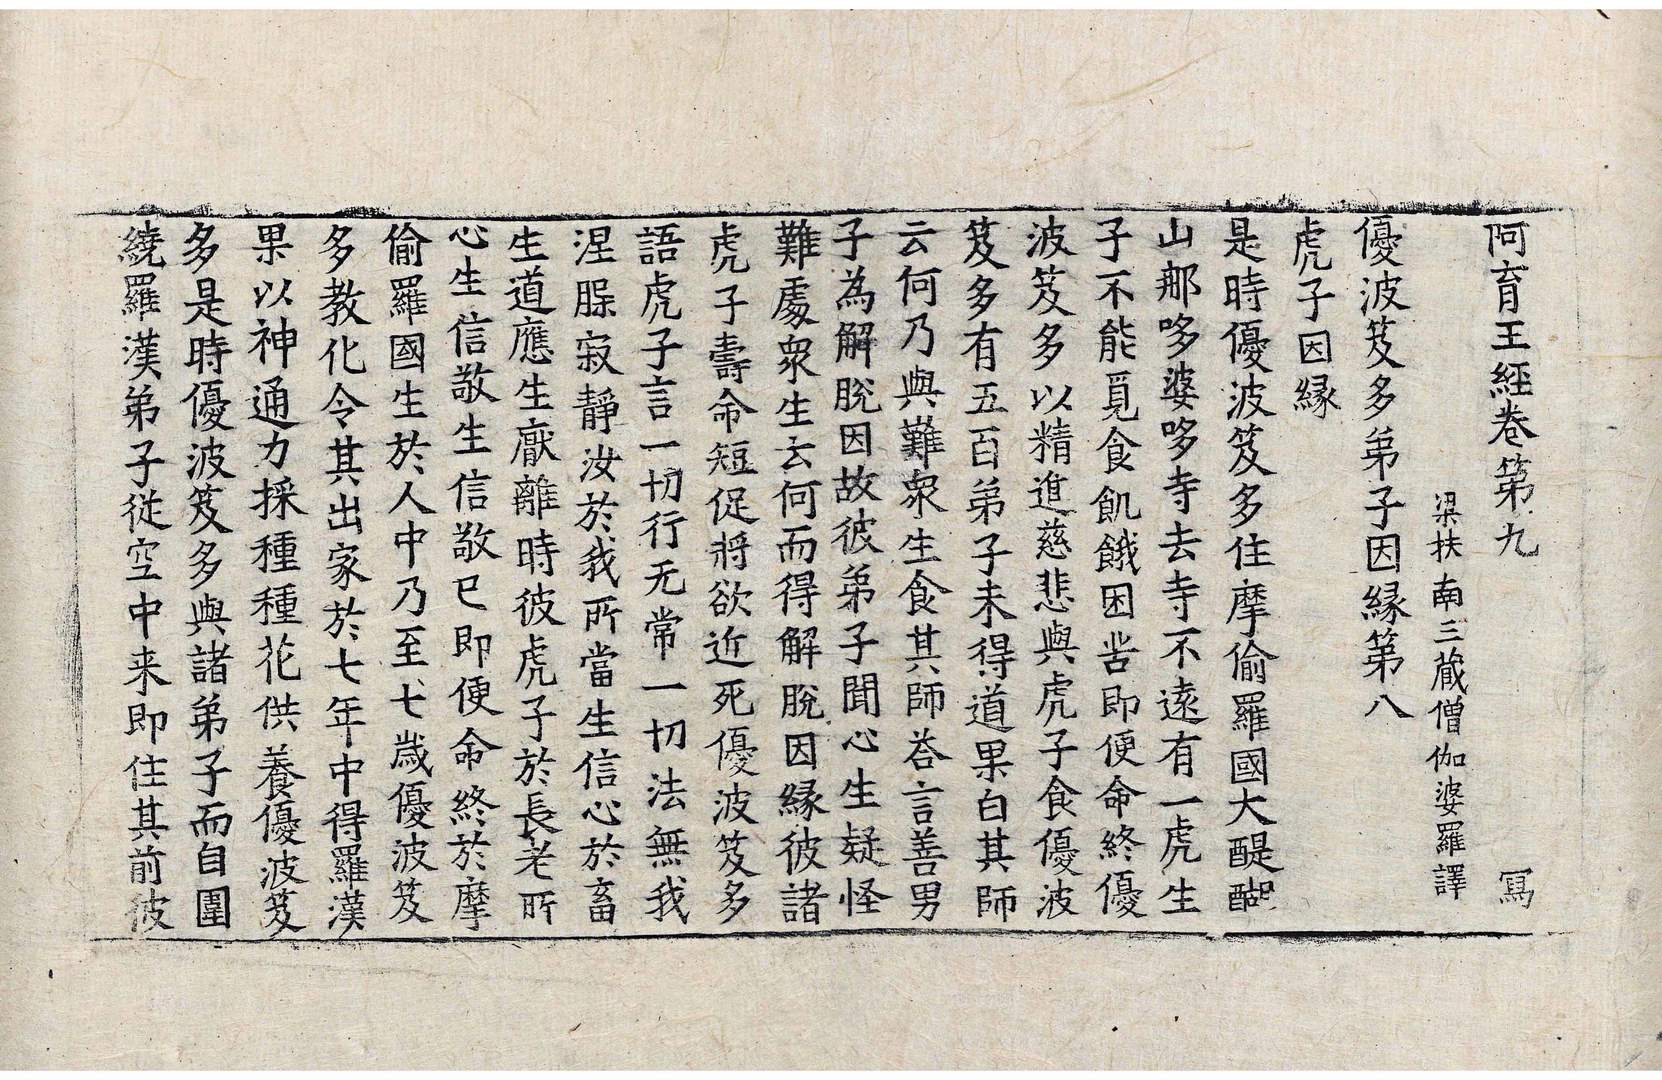 阿育王經卷第九 寫
梁扶南三藏僧伽婆羅譯
優波笈多弟子因縁第八
虎子因縁
是時優波笈多住摩偷羅國大醍醐
山那哆婆哆寺去寺不遠有一虎生
子不能覓食飢餓困苦即便命終優
波笈多以精進慈悲與虎子食優波
笈多有五百弟子未得道果白其師
云何乃與難衆生食其師荅言善男
子為解脫因故彼弟子聞心生疑怪
難處衆生云何而得解脫因縁彼諸
虎子壽命短促將欲近死優波笈多
語虎子言一切行无常一切法無我
涅槃寂靜汝於我所當生信心於畜
生道應生厭離時彼虎子於長老所
心生信敬生信敬已即便命終於摩
偷羅國生於人中乃至七歲優波笈
多教化令其出家於七年中得羅漢
果以神通力採種種花供養優波笈
多是時優波笈多與諸弟子而自圍
繞羅漢弟子從空中来即住其前彼